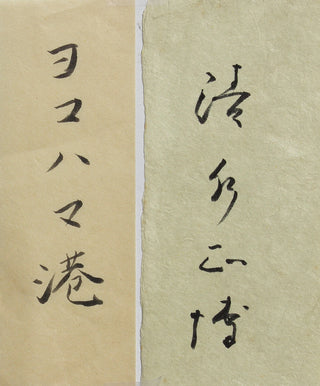 清水正博
ヨコハマ港